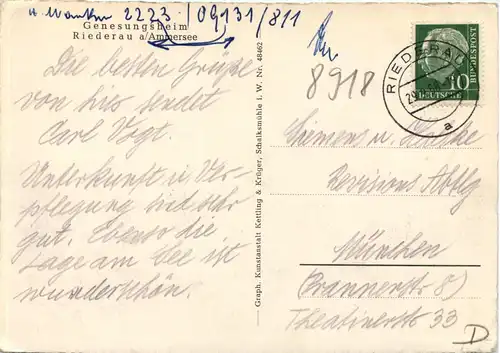 H. Wanka 2223 / 09131/811
Genesungsheim
Riederau a/Ammersee
8918
RIEDERAU
a
10
DEUTSCHE
BUNDESPOST
Die besten Grüße
von hier sendet
Carl Vogt.
Unterkunft u. Ver-
pflegung sind sehr
gut. Ebenso die
Lage am See ist
wunderschön.
Graph. Kunstanstalt Kettling & Krüger, Schalksmühle i. W. Nr. 48462
Siemens u.
Revisions Abtlg
München
(Prannerstr 8)
Theatinerstr 33
D